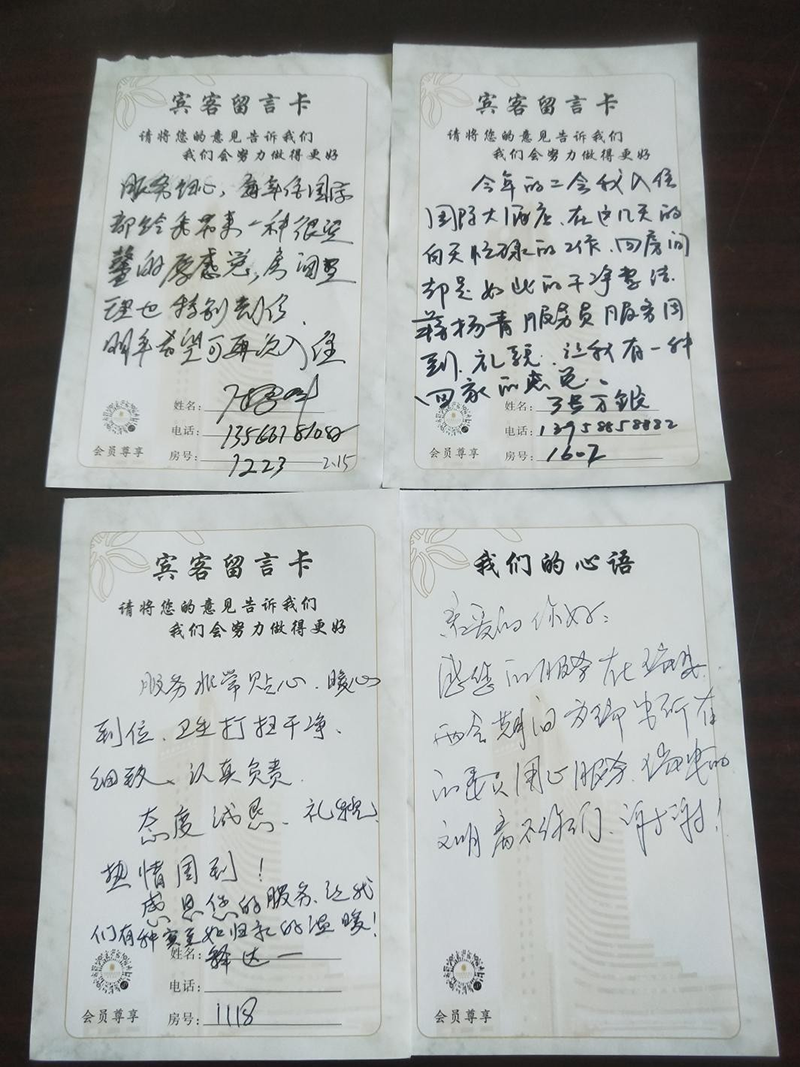 宾客留言卡
请将您的意见告诉我们
我们会努力做得更好
服务细心,每年住国际
都给我带来一种很温
馨的感觉,房间整
理也特别到位
明年希望可再次入住
姓名:
电话:
房号: 1223 2.15
会员尊享
宾客留言卡
请将您的意见告诉我们
我们会努力做得更好
今年的二会我入住
国际大酒店、在这几天的
白天忙碌的工作、回房间
却是如此的干净整洁.
蒋杨青服务员服务周
到、礼貌、让我有一种
回家的感觉。
姓名:
电话: 13958858882
房号: 1602
会员尊享
宾客留言卡
请将您的意见告诉我们
我们会努力做得更好
服务非常贴心、暖心
到位、卫生打扫干净、
细致、认真负责.
态度诚恳、礼貌、
热情周到!
感恩您的服务、让我
们有种宾至如归家的温暖!
姓名: 释达一
电话:
房号: 1118
会员尊享
我们的心语
亲爱的你好.
感您的服务在瑞安.
两会期间为那出所有
的委员用心服务、瑞安的
文明离不你们、谢谢!
会员尊享